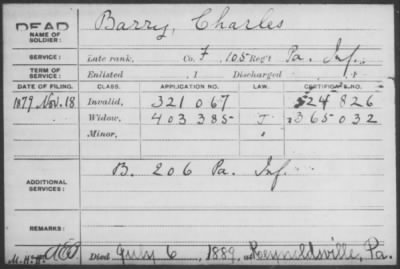 DEAD
NAME OF SOLDIER: Barry, Charles
SERVICE: Late rank, Co. F, 105 Reg't Pa. Inf.
TERM OF SERVICE: Enlisted , 1 Discharged , 1
DATE OF FILING. CLASS. APPLICATION NO. LAW. CERTIFICATE NO.
1879 Nov. 18 Invalid, 321 067 524 826
Widow, 403 385 J 365 032
Minor,
ADDITIONAL SERVICES: B. 206 Pa. Inf.
REMARKS:
Died July 6, 1889, at Reynoldsville, Pa.